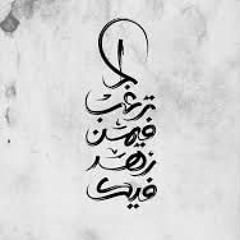 لا
ترغب
فيمن
زهد
فيك